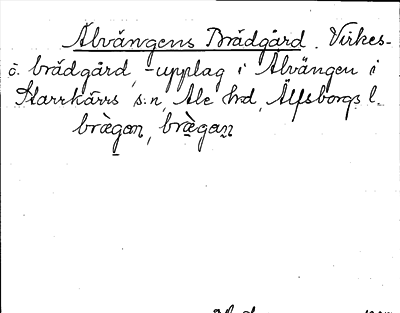 Älvängens Brädgård. Virkes-
o. brädgård, -upplag i Älvängen i
Starrkärrs s:n, Ale hd, Älfsborgs l.
brægan, brægan